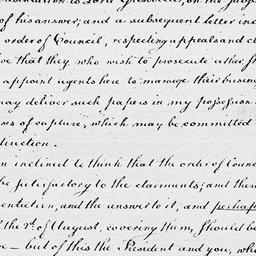 to Lord Grenville, on the subject
of his answer; and a subsequent letter in
order of Council, respecting appeals and cl
ve that they who wish to prosecute either
appoint agents here to manage their busine
may deliver such papers in my possession
ses of capture, which may be committed
direction.
m inclined to think that the order of Counc
be satisfactory to the claimants; and the
entation, and the answer to it, and perhaps
f the 2d. of August, covering them, should be
e — but of this the President and you, wh